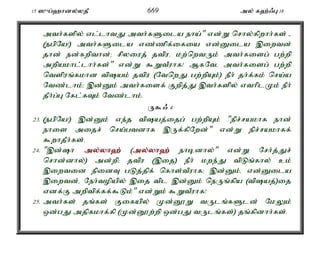 15 ஸுப்ஹானல்லதீ 669 அல் கஹ்ஃபு 18
அவர்களில் எட்டாவது அவர்களுடைய நாய்" என்று சொல்கிறார்கள் -
(நபியே!) அவர்களுடைய எண்ணிக்கையை என்னுடைய இறைவன்
தான் நன்கறிவான்; சிலரைத் தவிர, மற்றெவரும் அவர்களைப் பற்றி
அறியமாட்டார்கள்" என்று கூறுவீராக! ஆகவே, அவர்களைப் பற்றி
வெளிரங்கமான விஷயம் தவிர (வேறெது பற்றியும்) நீர் தர்க்கம் செய்ய
வேண்டாம்; இன்னும் அவர்களைக் குறித்து இவர்களில் எவரிடமும் நீர்
தீர்ப்பு கேட்கவும் வேண்டாம்.
ருகூஃ 4
23. (நபியே!) இன்னும் எந்த விஷயத்தைப் பற்றியும் "நிச்சயமாக நான்
நாளை அதைச் செய்பவனாக இருக்கிறேன்" என்று நிச்சயமாகக்
கூறாதீர்கள்.
24. "இன்ஷா அல்லாஹ் (அல்லாஹ் நாடினால்)" என்று சேர்த்துச்
சொன்னால்) அன்றி; தவிர (இதை) நீர் மறந்து விடுங்கால் உம்
இறைவனை நினைவு படுத்திக் கொள்வீராக; இன்னும், என்னுடைய
இறைவன், நேர்வழியில் இதை விட இன்னும் நெருங்கிய (விஷயத்)தை
எனக்கு அறிவிக்கக்கூடும்" என்றும் கூறுவீராக!
25. அவர்கள் தங்கள் குகையில் முன்னூறு வருடங்களுடன் மேலும்
ஒன்பது அதிகமாக்கி (முன்னூற்றி ஒன்பது வருடங்கள்) தங்கினார்கள்.